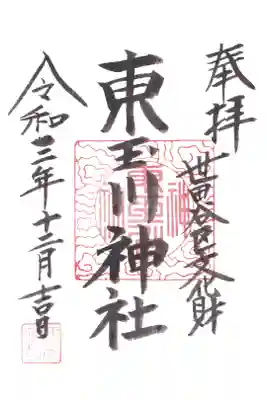 奉拝
世田谷区文化財
東玉川神社
令和三年十二月吉日